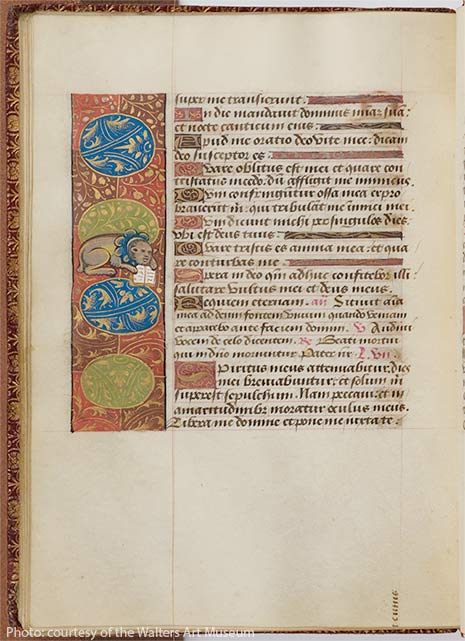 super me transierunt.
In die mandavit dominus mia͞z sua͞:
et nocte canticum eius.
Apud me oratio deo vite mee: dicam
deo susceptor es.
Quare oblitus es mei et quare con
tristatus incedo: du͞ affligit me inimicus.
Dum confringu͞tur ossa mea expro
braverunt m͞: qui tribulant me inimici mei.
Dum dicunt michi per singulos dies.
ubi est deus tuus:
Quare tristis es anima mea: et qua
re conturbas me.
Spera in deo qm͞ adhuc confitebor illi
salutare vultus mei et deus meus.
Requiem eternam. an͞ Sitivit a͞ia
mea ad deum fontem vivum quando veniam
et apparebo ante faciem domini. V Audivi
vocem de celo dicentem. R Beati mortui
qui in d͞no moriuntur. Pater nr͞. L. vii.
Spiritus meus attenuabitur, dies
mei breviabuntur: et solum m͞
superest sepulchrum. Nam peccavi: et in
amaritudinibz moratur oculus meus.
Libera me domine et pone me iuxta te:
Photo: courtesy of the Walters Art Museum